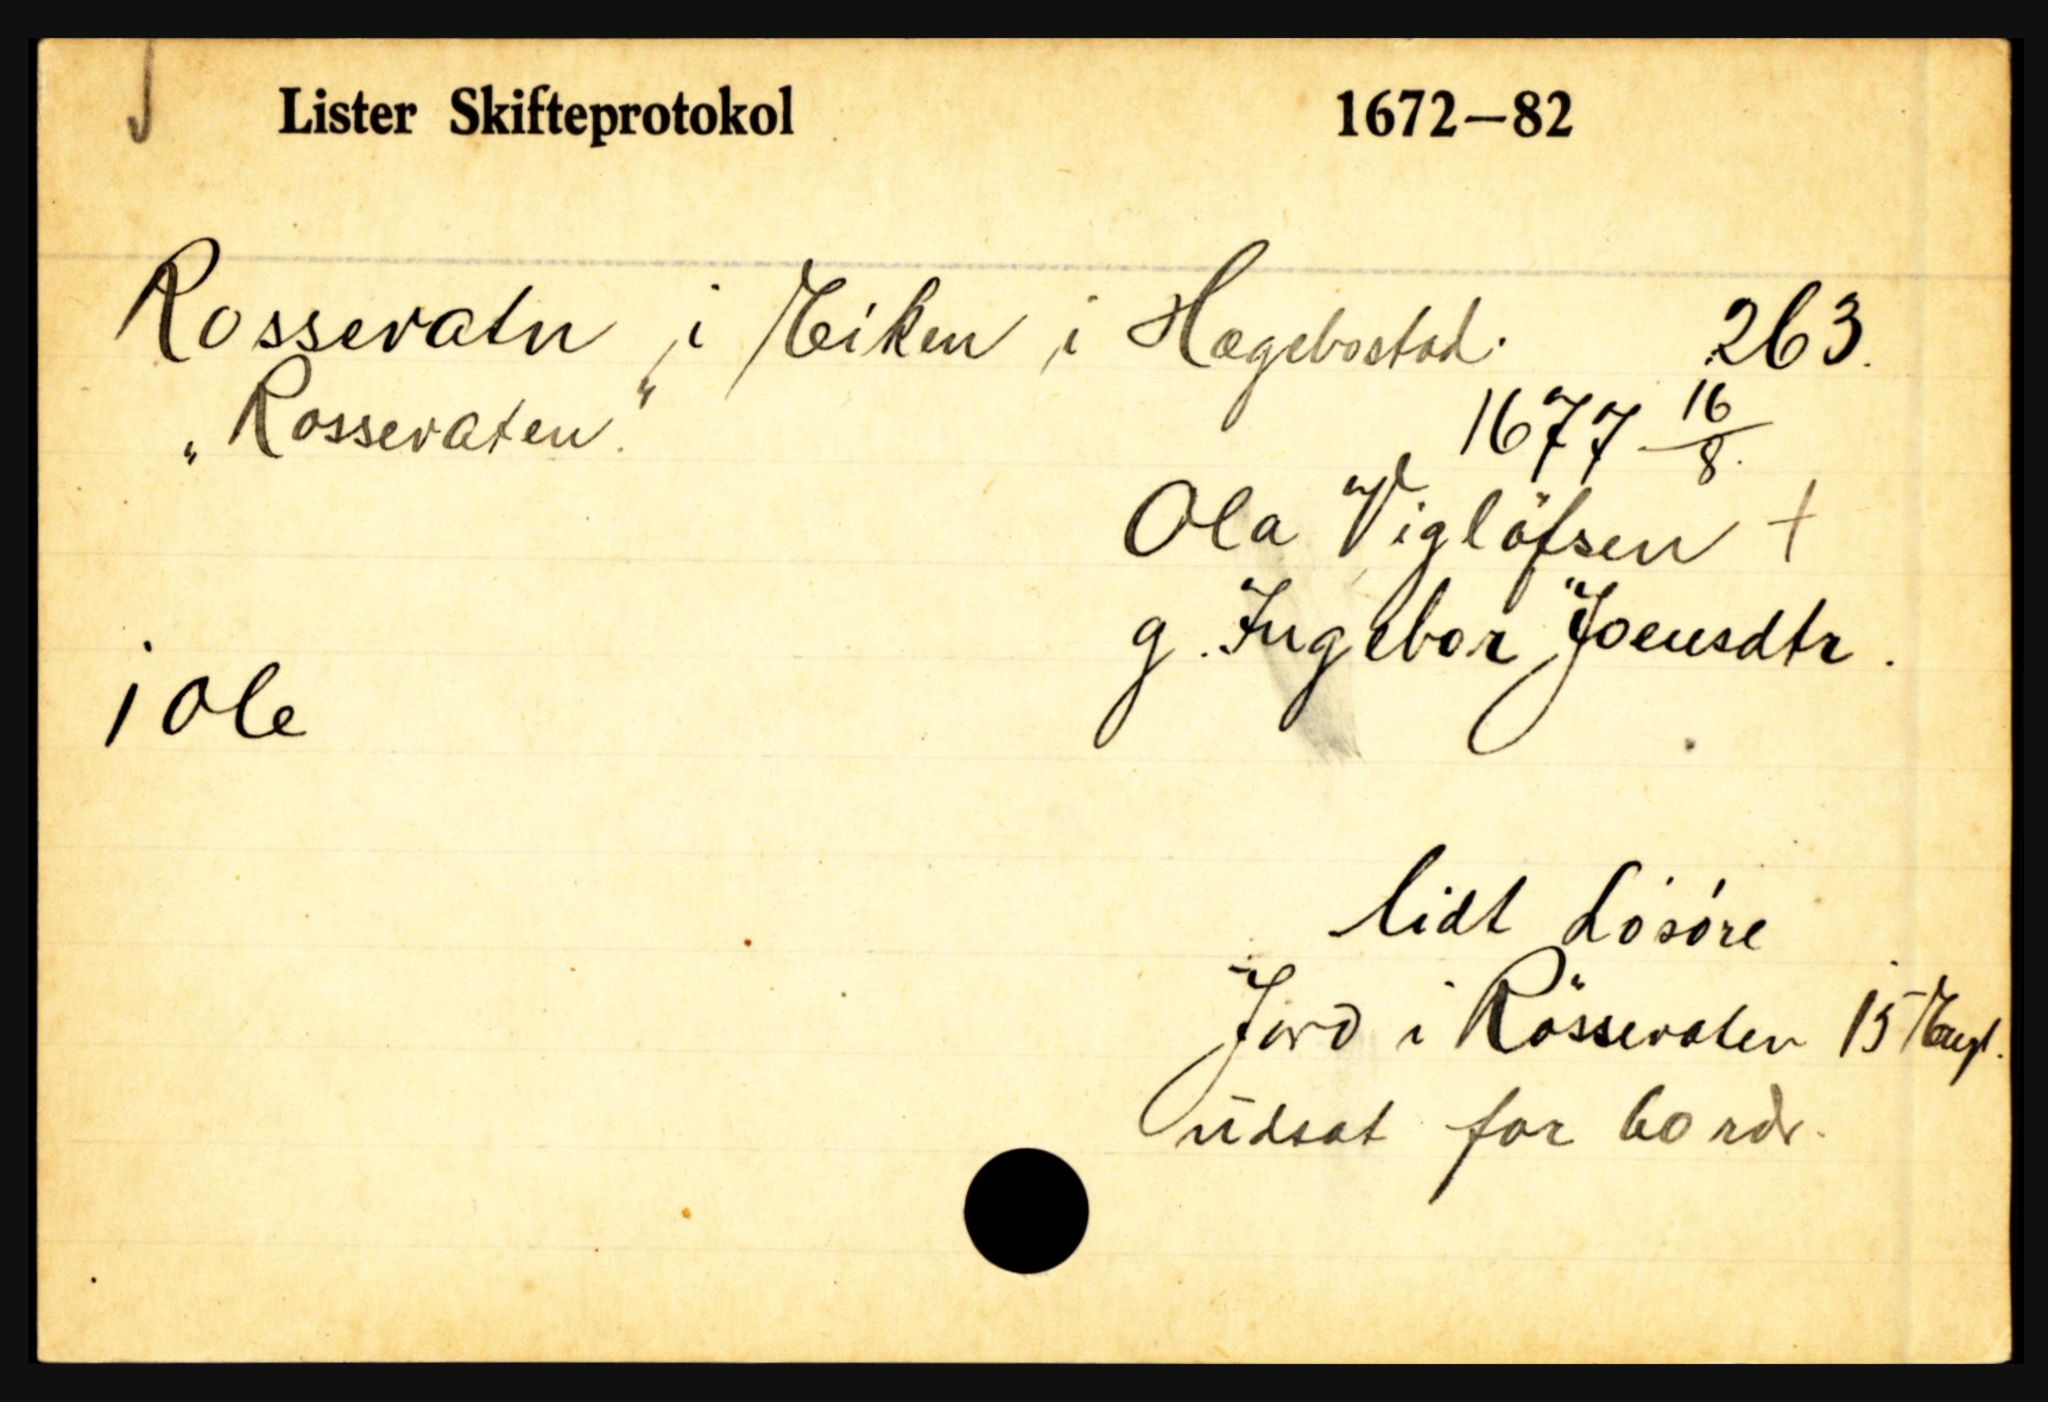 Lister Skifteprotokol 1672—82
Rossevatn i Eiken i Hægebostad. 263.
„Rossevaten."
1677 16/8.
Ola Viglöfsen +
g. Ingebor Joensdtr.
1 Ole
lidt Lösöre
Jord i Rössevaten 15 Engl.
udsat for 60 rdr.